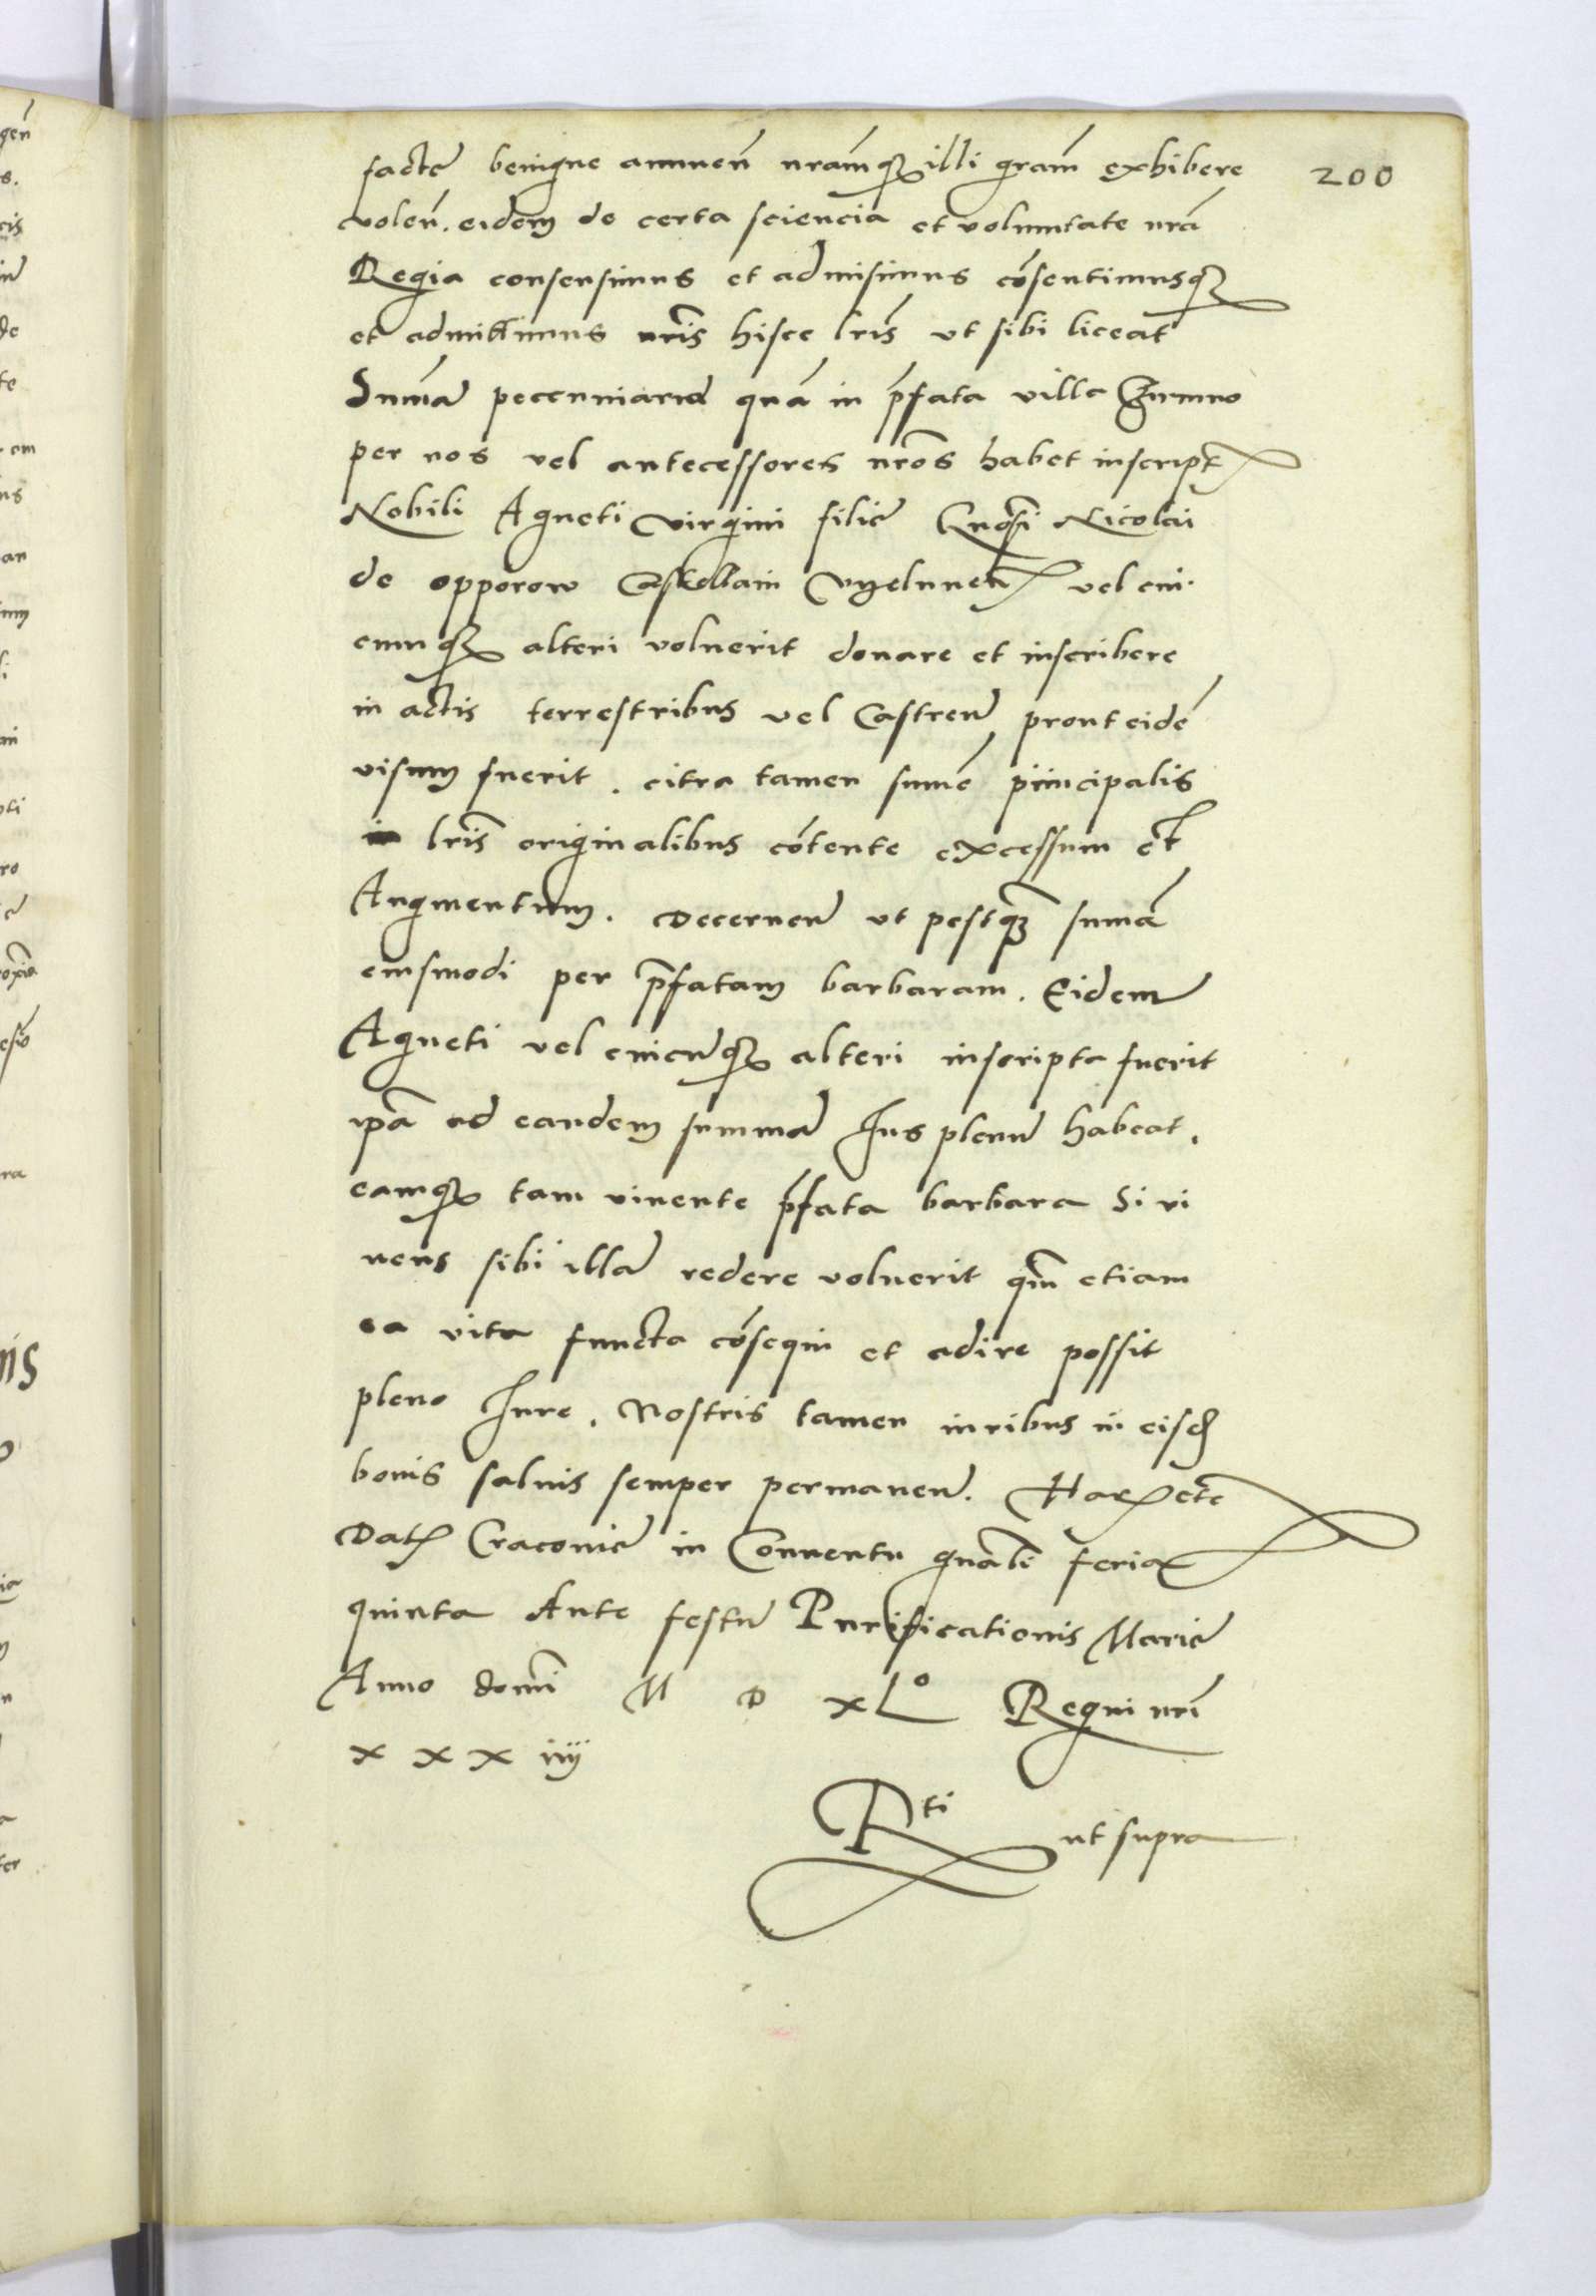 200
facte benigne annuen̄ nram̄qꝫ illi gram̄ exhibere
volen̄. eidem de certa sciencia et voluntate nrā
Regia consensimus et admisimus cōsentimusqꝫ
et admittimus nrīs hisce lrīs ut sibi liceat
Sum̄a pecuniaria quā in p̄fata villa
per nos vel antecessores nrōs habet inscript
Nobili Agneti virgini filie Gnosi Nicolai
de opporow Castellani vel cui
cumqꝫ alteri voluerit donare et inscribere
in actis terrestribus vel Castren̄ prout eidē
visum fuerit. citra tamen sum̄e principalis
in lrīs originalibus cōtente excessum et
Augmentum. Decernen̄ ut postqꝫ sum̄a
eiusmodi per p̄fatam barbaram. Eidem
Agneti vel cuicūqꝫ alteri inscripta fuerit
ipā ad eandem summā Ius plenū habeat.
eamqꝫ tam vivente p̄fata barbara Si vi
vens sibi illā redere voluerit qm̄ etiam
ea vita functa cōsequi et adire possit
pleno Iure. Nostris tamen iuribus in eisd
bonis salvis semper permanen̄. Har etc
Dat Cracovie in Conventu gnāli feria
quinta Ante festū Purificationis Marie
Anno domī M D XLº Regni nrī
x x x iiij
Rti ut supra